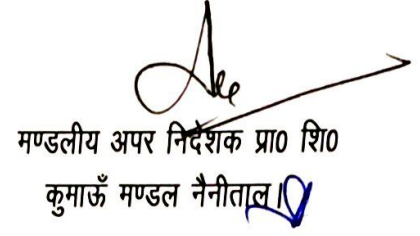 मण्डलीय अपर निदेशक प्रा0 शि0
कुमाऊँ मण्डल नैनीताल।